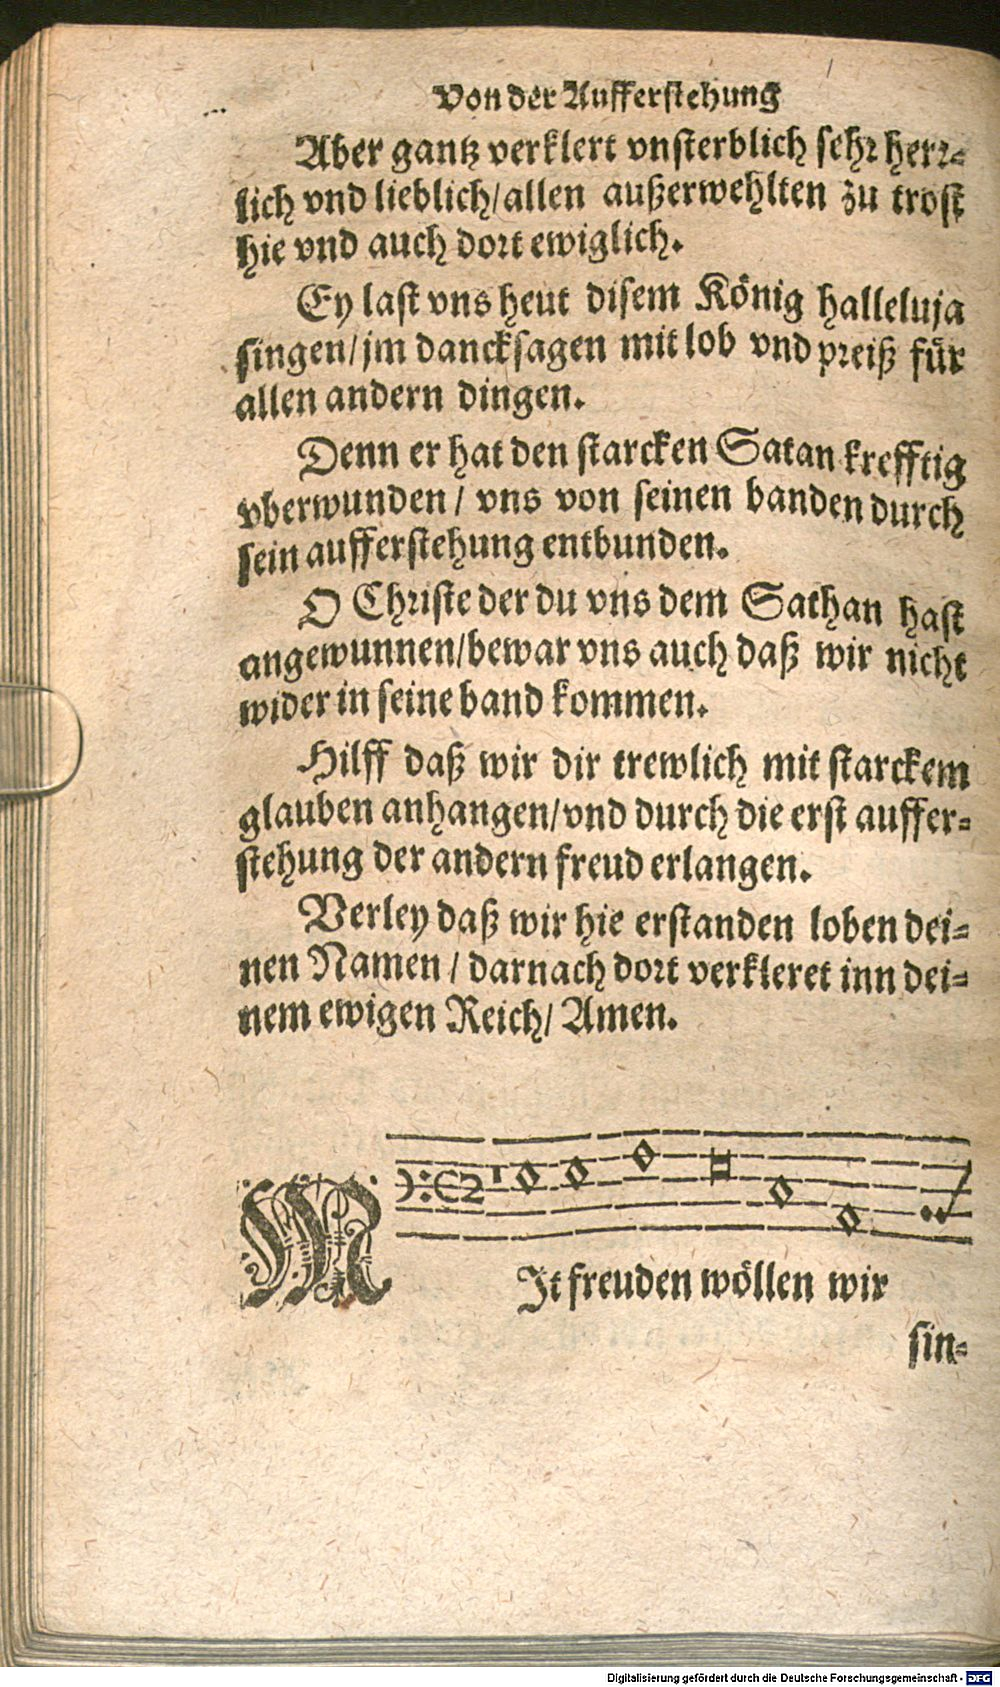 Von der Aufferstehung
Aber gantz verklert vnsterblich sehr herr-
lich vnd lieblich/allen außerwehlten zu trost
hie vnd auch dort ewiglich.
Ey last vns heut disem König halleluja
singen/jm dancksagen mit lob vnd preiß für
allen andern dingen.
Denn er hat den starcken Satan krefftig
vberwunden/ vns von seinen banden durch
sein aufferstehung entbunden.
O Christe der du vns dem Sathan hast
angewunnen/bewar vns auch daß wir nicht
wider in seine band kommen.
Hilff daß wir dir trewlich mit starckem
glauben anhangen/vnd durch die erst auffer-
stehung der andern freud erlangen.
Verley daß wir hie erstanden loben dei-
nen Namen / darnach dort verkleret inn dei-
nem ewigen Reich/ Amen.
MIt freuden wöllen wir
sin-
Digitalisierung gefördert durch die Deutsche Forschungsgemeinschaft - DFG